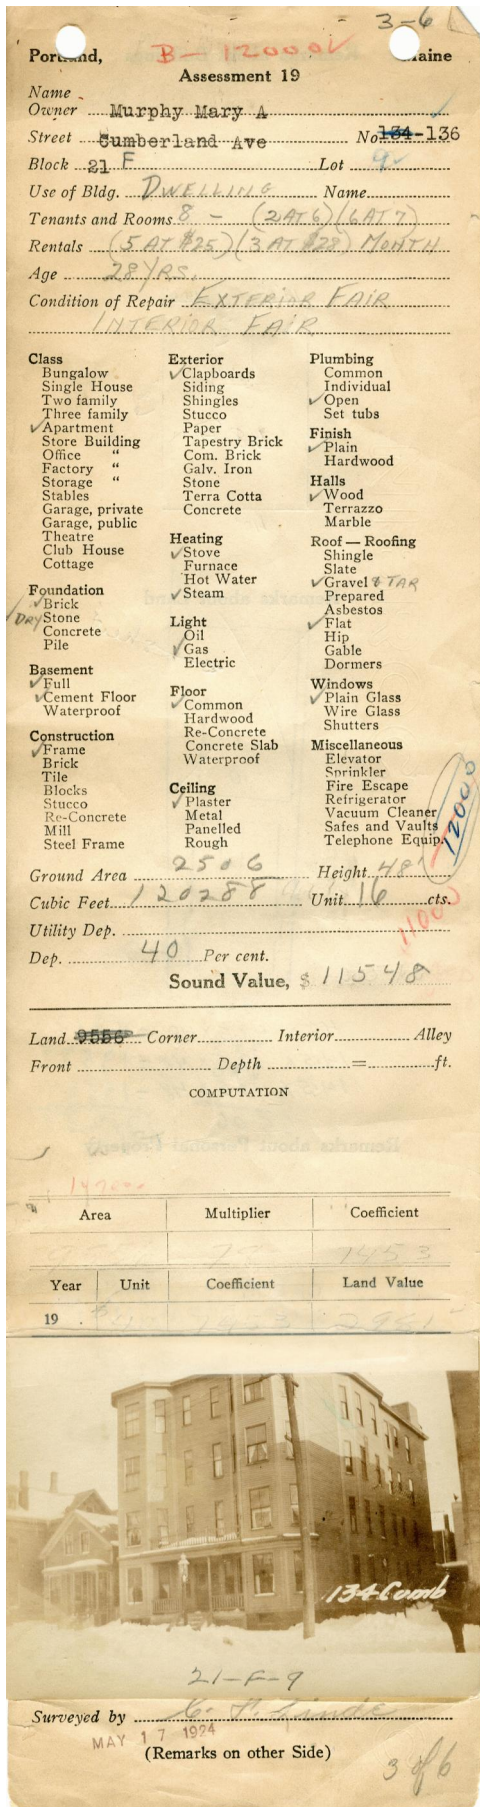 3-6
Portland, B-12000 Maine
Assessment 19
Name
Owner Murphy Mary A
Street Cumberland Ave No 134-136
Block 21 F Lot 9
Use of Bldg. DWELLING Name
Tenants and Rooms 8 - (2 AT 6) (6 AT 7)
Rentals (5 AT $25) (3 AT $28) MONTH
Age 28 YRS.
Condition of Repair EXTERIOR FAIR
INTERIOR FAIR
Class
Bungalow
Single House
Two family
Three family
✓Apartment
Store Building
Office "
Factory "
Storage "
Stables
Garage, private
Garage, public
Theatre
Club House
Cottage
Foundation
✓Brick
✓DRY Stone
Concrete
Pile
Basement
✓Full
✓Cement Floor
Waterproof
Construction
✓Frame
Brick
Tile
Blocks
Stucco
Re-Concrete
Mill
Steel Frame
Exterior
✓Clapboards
Siding
Shingles
Stucco
Paper
Tapestry Brick
Com. Brick
Galv. Iron
Stone
Terra Cotta
Concrete
Heating
✓Stove
Furnace
Hot Water
✓Steam
Light
Oil
✓Gas
Electric
Floor
✓Common
Hardwood
Re-Concrete
Concrete Slab
Waterproof
Ceiling
✓Plaster
Metal
Panelled
Rough
Plumbing
Common
Individual
✓Open
Set tubs
Finish
✓Plain
Hardwood
Halls
✓Wood
Terrazzo
Marble
Roof — Roofing
Shingle
Slate
✓Gravel & TAR
Prepared
Asbestos
✓Flat
Hip
Gable
Dormers
Windows
✓Plain Glass
Wire Glass
Shutters
Miscellaneous
Elevator
Sprinkler
Fire Escape
Refrigerator
Vacuum Cleaner
Safes and Vaults
Telephone Equip.
12000
Ground Area 2506 Height 48'
Cubic Feet 120288 Unit 16 cts.
11000
Utility Dep.
Dep. 40 Per cent.
Sound Value, $ 11548
Land 9556 Corner Interior Alley
Front Depth = ft.
COMPUTATION
Area Multiplier Coefficient
1453
Year Unit Coefficient Land Value
19
134 Cumb
21-F-9
Surveyed by
MAY 17 1924
(Remarks on other Side)
3 of 6